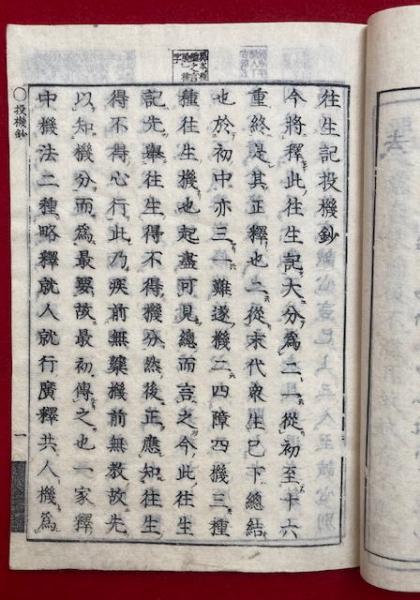 往生記投機鈔
今將釋此往生記大分為二一從初至十六
重終是其正釋也二從末代衆生已下總結
也於初中亦三一難遂機二四障四機三種
種往生機也起盡可見總而言之今此往生
記先舉往生得不得機分然後正應知往生
得不得心行此乃疾前無藥機前無教故先
以知機分而爲最要故最初傳之也一家釋
中機法二種略釋就人就行廣釋共人機爲
○投機鈔
一